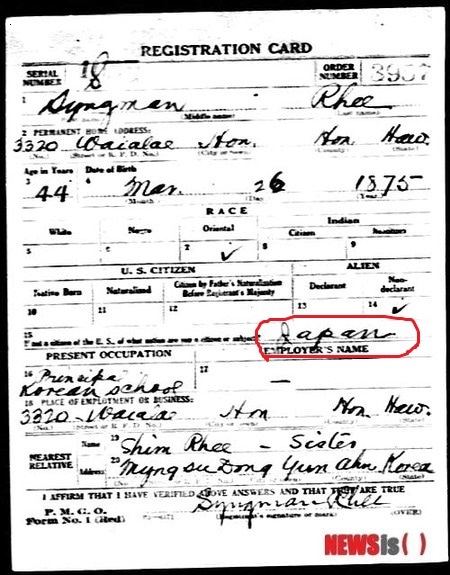 REGISTRATION CARD
SERIAL NUMBER 18 ORDER NUMBER 3957
1 Syngman Rhee
(Middle name) (Last name)
2 PERMANENT HOME ADDRESS:
3320 Waialae Hon. Hon Haw.
(No.) (Street or R. F. D. No.) (City or town) (County) (State)
Age in Years Date of Birth
3 44 4 Mar. 26 1875
(Month) (Day) (Year)
RACE
White Negro Oriental Indian
Citizen
5 6 7 ✓ 8 9
U. S. CITIZEN ALIEN
Native Born Naturalized Citizen by Father's Naturalization Before Registrant's Majority Declarant Non-declarant
10 11 12 13 14 ✓
15 If not a citizen of the U. S., of what nation are you a citizen or subject? Japan
PRESENT OCCUPATION EMPLOYER'S NAME
16 Principal 17 —
Korean School
18 PLACE OF EMPLOYMENT OR BUSINESS:
3320 - Waialae Hon Hon Haw.
(No.) (Street or R. F. D. No.) (City or town) (County) (State)
NEAREST RELATIVE
Name 19 Shim Rhee - Sister
Address 20 Myng su Dong Yun Ahn Korea
I AFFIRM THAT I HAVE VERIFIED ABOVE ANSWERS AND THAT THEY ARE TRUE
P. M. G. O.
Form No. 1 (Red) Syngman Rhee
(Registrant's signature or mark) (OVER)
NEWSis( )